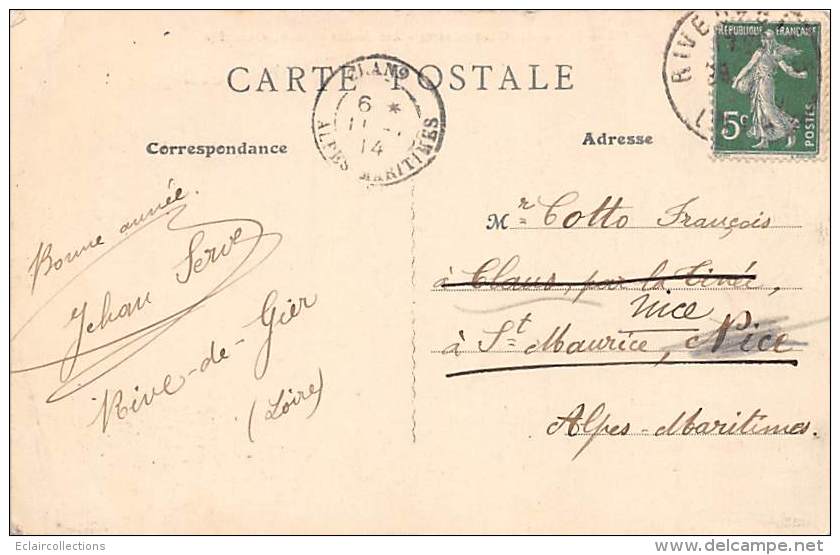 CARTE POSTALE
Correspondance
Adresse
RÉPUBLIQUE FRANÇAISE
5c
POSTES
6 *
14
ALPES MARITIMES
Bonne année.
Jehan Serve
Rive-de-Gier
(Loire)
Mr Cotto François
à Clans, par la Tinée,
Nice
à St Maurice, Nice
Alpes-Maritimes.
Eclaircollections
www.delcampe.net